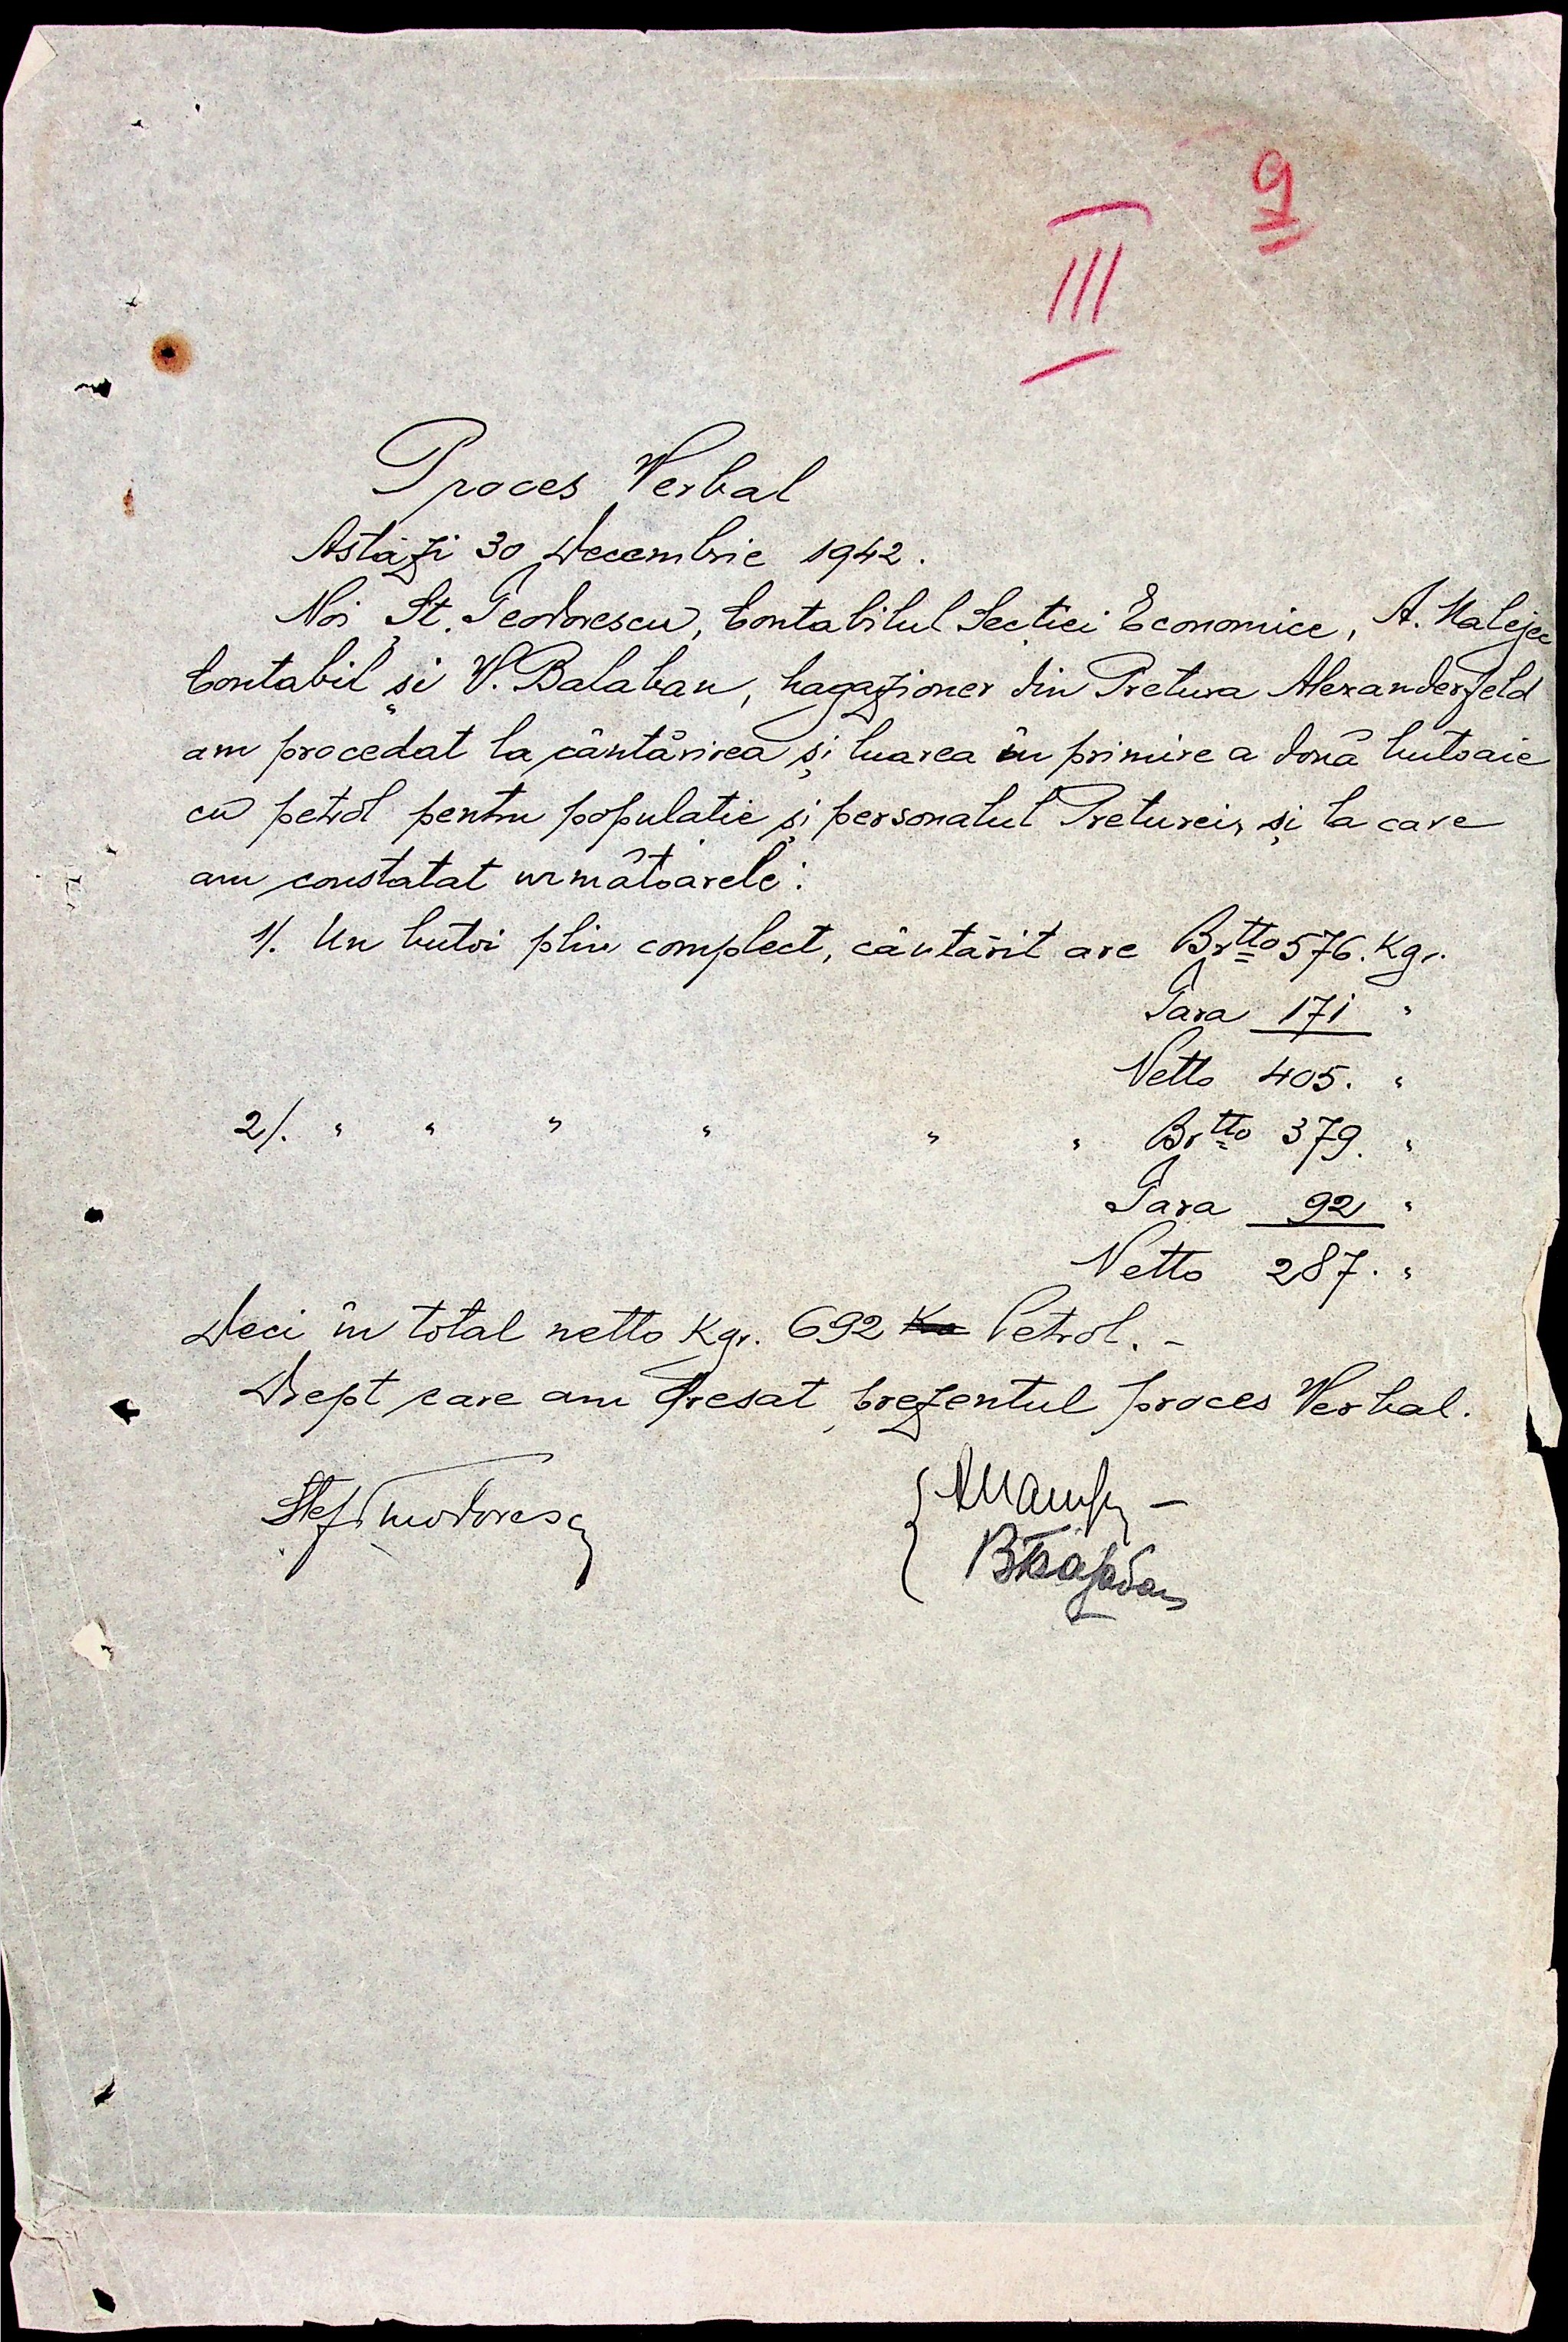 9
III
Proces Verbal
Astăzi 30 Decembrie 1942.
Noi St. Teodorescu, Contabilul Secției Economice, A. Malejec
Contabil și V. Balaban, hagazioner din Pretura Alexanderfeld
am procedat la cântărirea și luarea în primire a două butoaie
cu petrol pentru populatie și personalul Preturei, și la care
am constatat următoarele:
1/. Un butoi plin complect, cântărit are Brtto 576. Kgr.
Tara 171 "
Netto 405. "
2/. " " " " " " Brtto 379. "
Tara 92 "
Netto 287. "
Deci în total netto Kgr. 692 Petrol. -
Drept care am dresat prezentul proces Verbal.